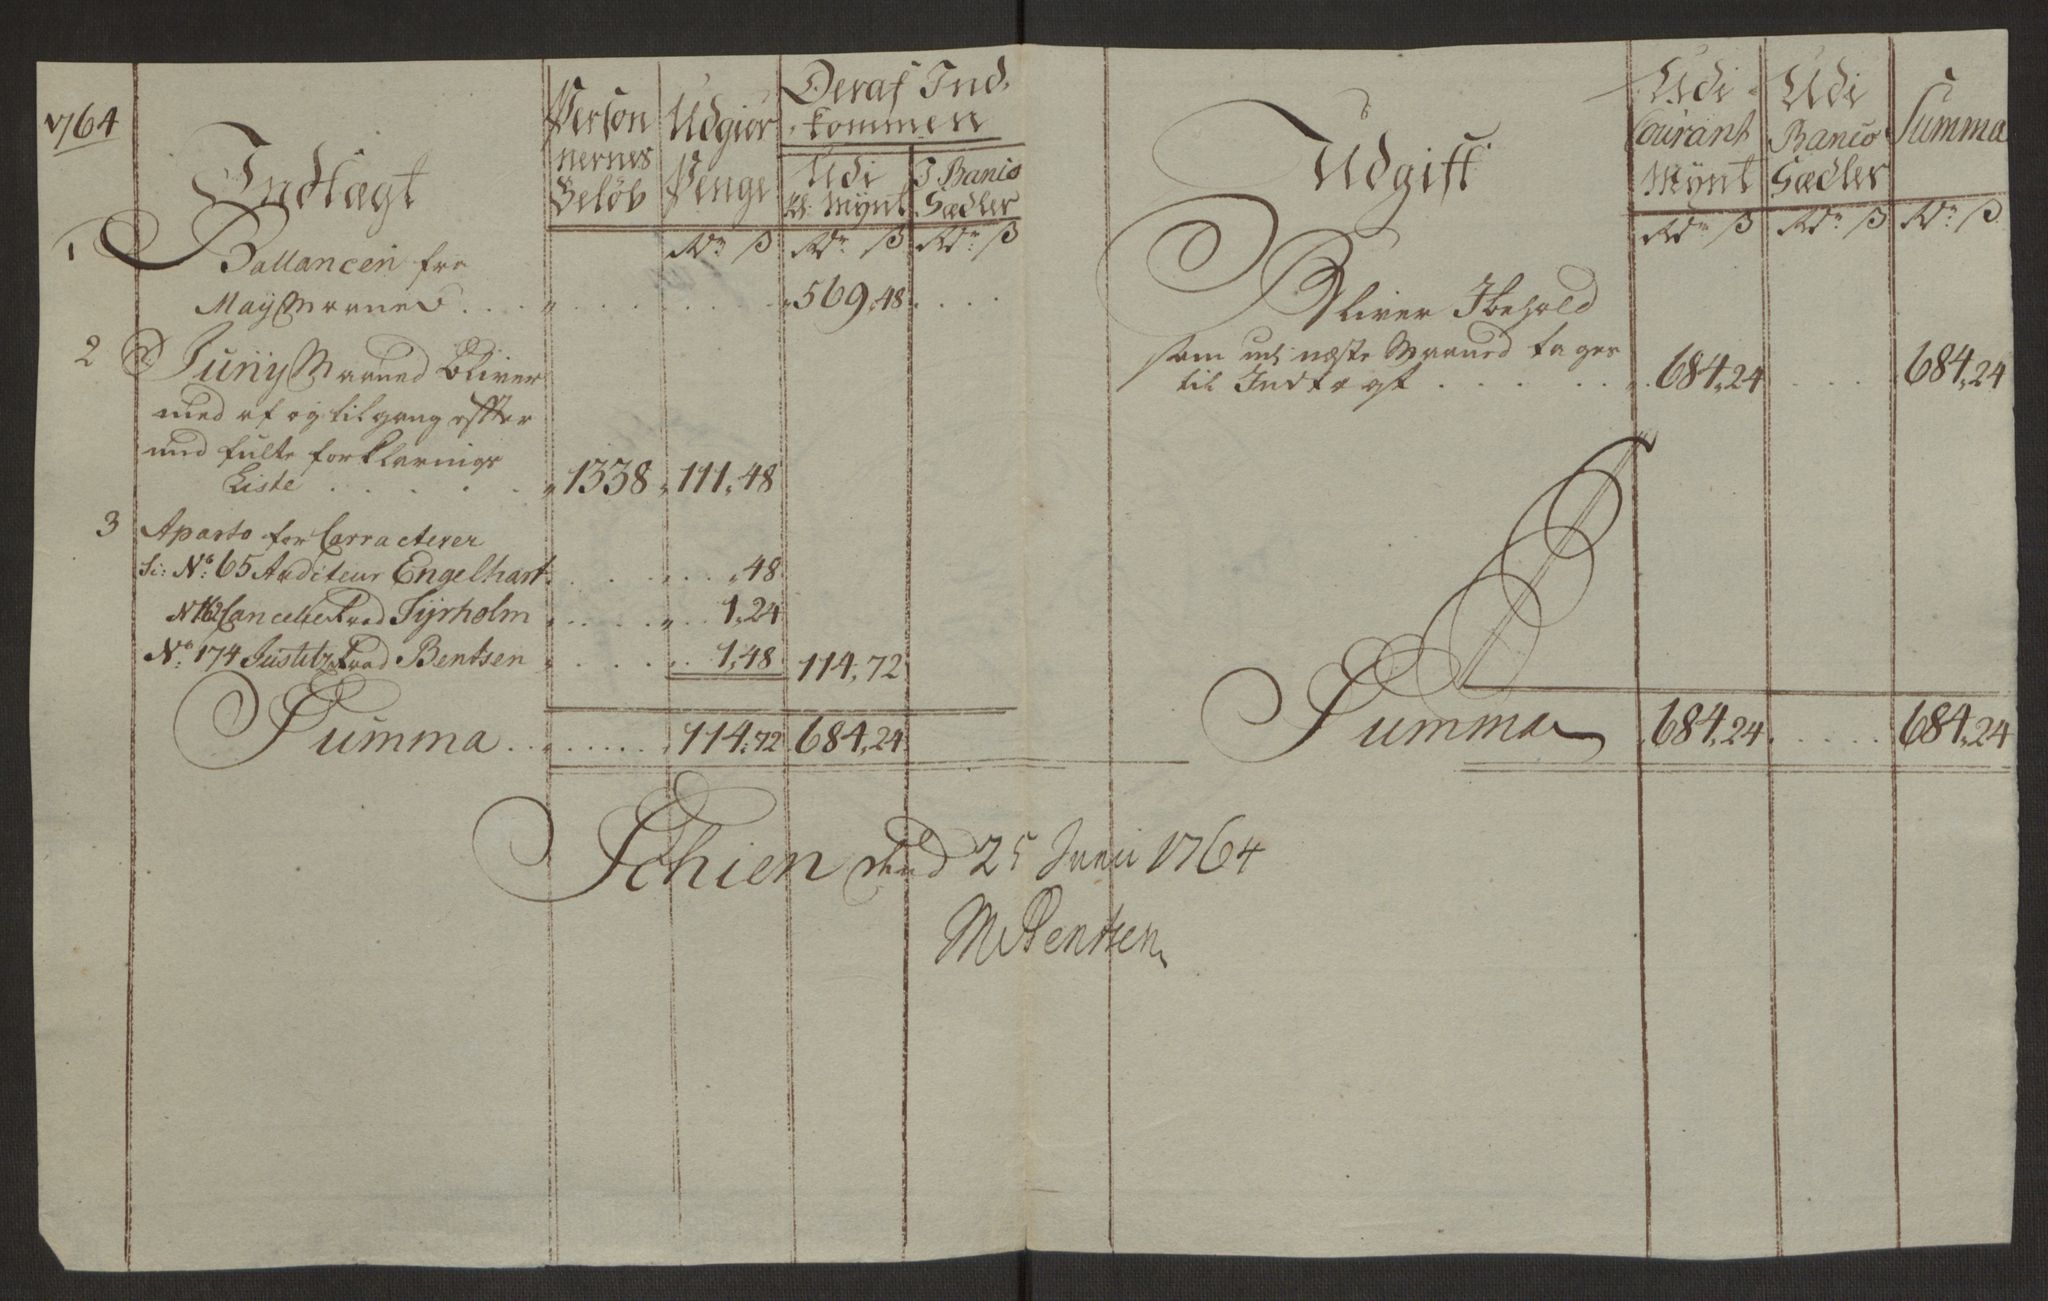 1764
Indtægt
Person
nernes
Beløb
Udgiør
Penge
Deraf Ind,
kommen
Udi
kl: Mÿnt
I Banco
Sædler
Rdr ß Rdr ß Rdr ß
1 Ballancen fra
Maÿ Maaned . . . . 569,48 . . . .
2 Junÿ Maaned bliver
med af og til gang effter
Liste . . . . . 1338 111,48
3 Aparto for Carracterer
Si: No: 65 Auditeur Engelhart . . . . . 48
No 162 Cancellie Raad Tÿrholm . . . . . 1,24
No: 174 Justitz Raad Bentsen . . . . . 1,48 114,72
Summa . . . . . . . 114,72 684,24
Udgift
Udi
Courant
Mÿnt
Udi
Banco
Sædler
Summa
Rdr ß Rdr ß Rdr ß
Bliver Ibehold
som udi næste Maaned tages
til Indtægt . . . . . . 684,24 . . . . 684,24
Summa 684,24 . . . . . 684,24
Schien den 25 Junii 1764
M Bentsen